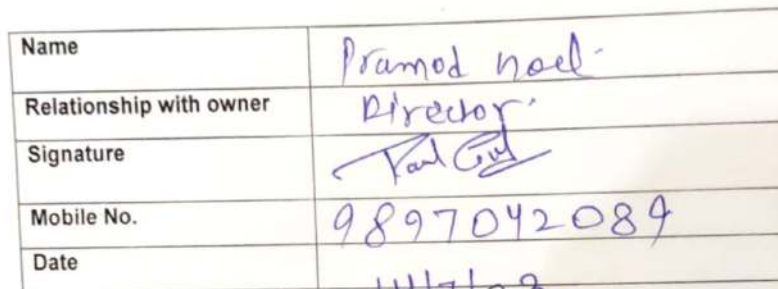 Name Pramod noel.
Relationship with owner Director.
Signature
Mobile No. 9897042089
Date